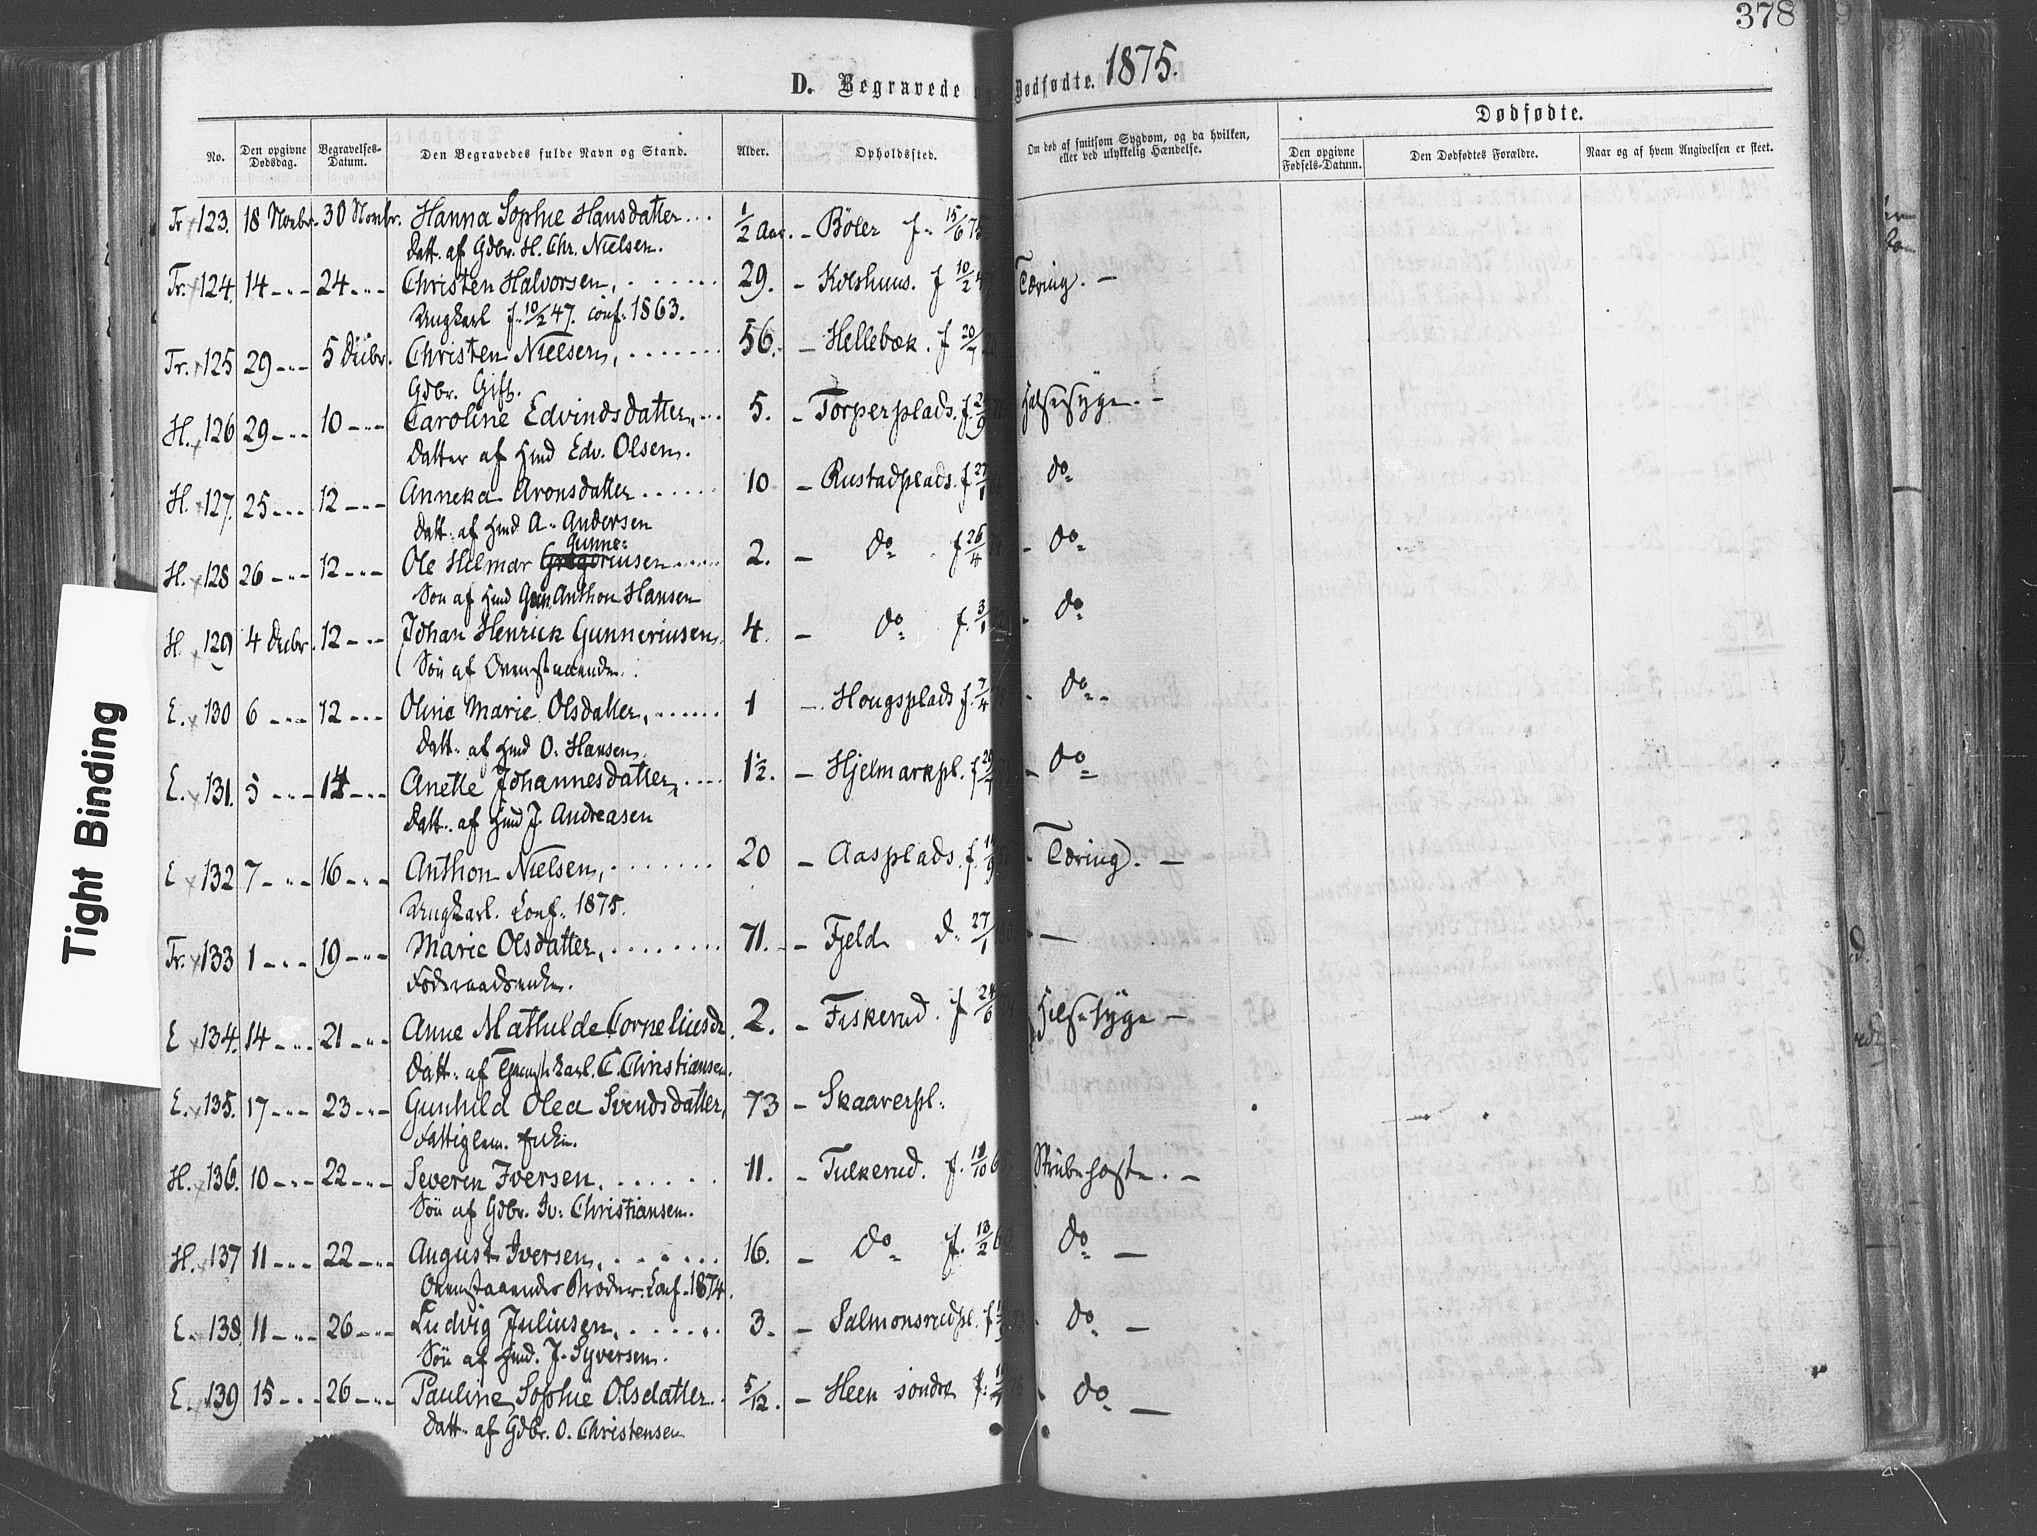 378
D. Begravede og Dødfødte. 1875.
No. Den opgivne Dødsdag. Begravelses-Datum. Den Begravedes fulde Navn og Stand. Alder. Opholdssted. Om død af smitsom Sygdom, og da hvilken, eller ved ulykkelig Hændelse. Dødfødte.
Den opgivne Fødsels-Datum. Den Dødfødtes Forældre. Naar og af hvem Angivelsen er skeet.
Fr 123. 18 Novbr. 30 Novbr. Hanna Sophie Hansdatter... 1/2 Aar. – Böler f. 15/6 75
Datt. af Gdbr. H. Chr. Nielsen.
Fr. 124 14 -"- 24 -"- Christen Halvorsen, 29. – Kolshuus. f 10/2 4 Tæring. –
Ungkarl f. 10/2 47. conf. 1863.
Fr. 125 29 -"- 5 Decbr. Christen Nielsen, 56. – Hellebæk. f 20/7
Gdbr. Gift.
H. 126 29 -"- 10 -"- Caroline Edvindsdatter,... 5. – Torperplads. f. Halsesyge. –
Datter af Hmd Edv. Olsen.
H. 127. 25 -"- 12 -"- Anneka Aronsdatter 10 – Rustadplads. f 27/1 do
Datt. af Hmd A. Andersen
Gunne-
H. 128 26 -"- 12 -"- Ole Helmar Gregoriusen 2. – do f 26/4 - do
Søn af Hmd Gun. Anthon Hansen
H. 129 4 Decbr. 12 -"- Johan Henrick Gunneriusen. 4. – do f. 3/1 - do
Søn af Ovenstaaende.
E. 130 6 -"- 12 -"- Oline Marie Olsdatter, 1 – Hougsplads f. 7/4 - do -
Datt. af Hmd O. Hansen.
E. 131. 5 -"- 14 -"- Anette Johannesdatter, 1 1/2. – Hjelmarkpl. f 20/4 - do
Datt. af Hmd J. Andreasen
E 132 7 -"- 16 -"- Anthon Nielsen, 20 – Aasplads. f. - Tæring. –
Ungkarl. Conf. 1875.
Fr. 133 1 -"- 19 -"- Marie Olsdatter, 71. – Fjeld D. 27/1 –
Føderaadsenke.
E 134. 14 -"- 21 -"- Anne Mathilde Corneliusdr. 2. – Fiskerud. f 24/6 Halsesyge –
Datt. af C. Christiansen.
E. 135. 17 -"- 23 -"- Gunhild Olea Svendsdatter, 73 – Skaarerpl.
Fattiglem. Enke.
H. 136. 10 -"- 22 -"- Severin Iversen. 11. – Tulkerud. f. 18/10 6 Strubehoste. –
Søn af Gdbr. Iv: Christiansen.
H. 137 11 -"- 22 -"- August Iversen, 16. – do f. 13/2 60 do –
Ovenstaaendes Broder. Conf. 1874.
E. 138 11 -"- 26 -"- Ludvig Juliusen, 3. – Salmonsrudpl. f do –
Søn af Hmd. J. Syversen.
E. 139 15 -"- 26 -"- Pauline Sophie Olsdatter. 5/12. – Heen søndre f. do –
Datt. af Gdbr. O. Christensen
Tight Binding